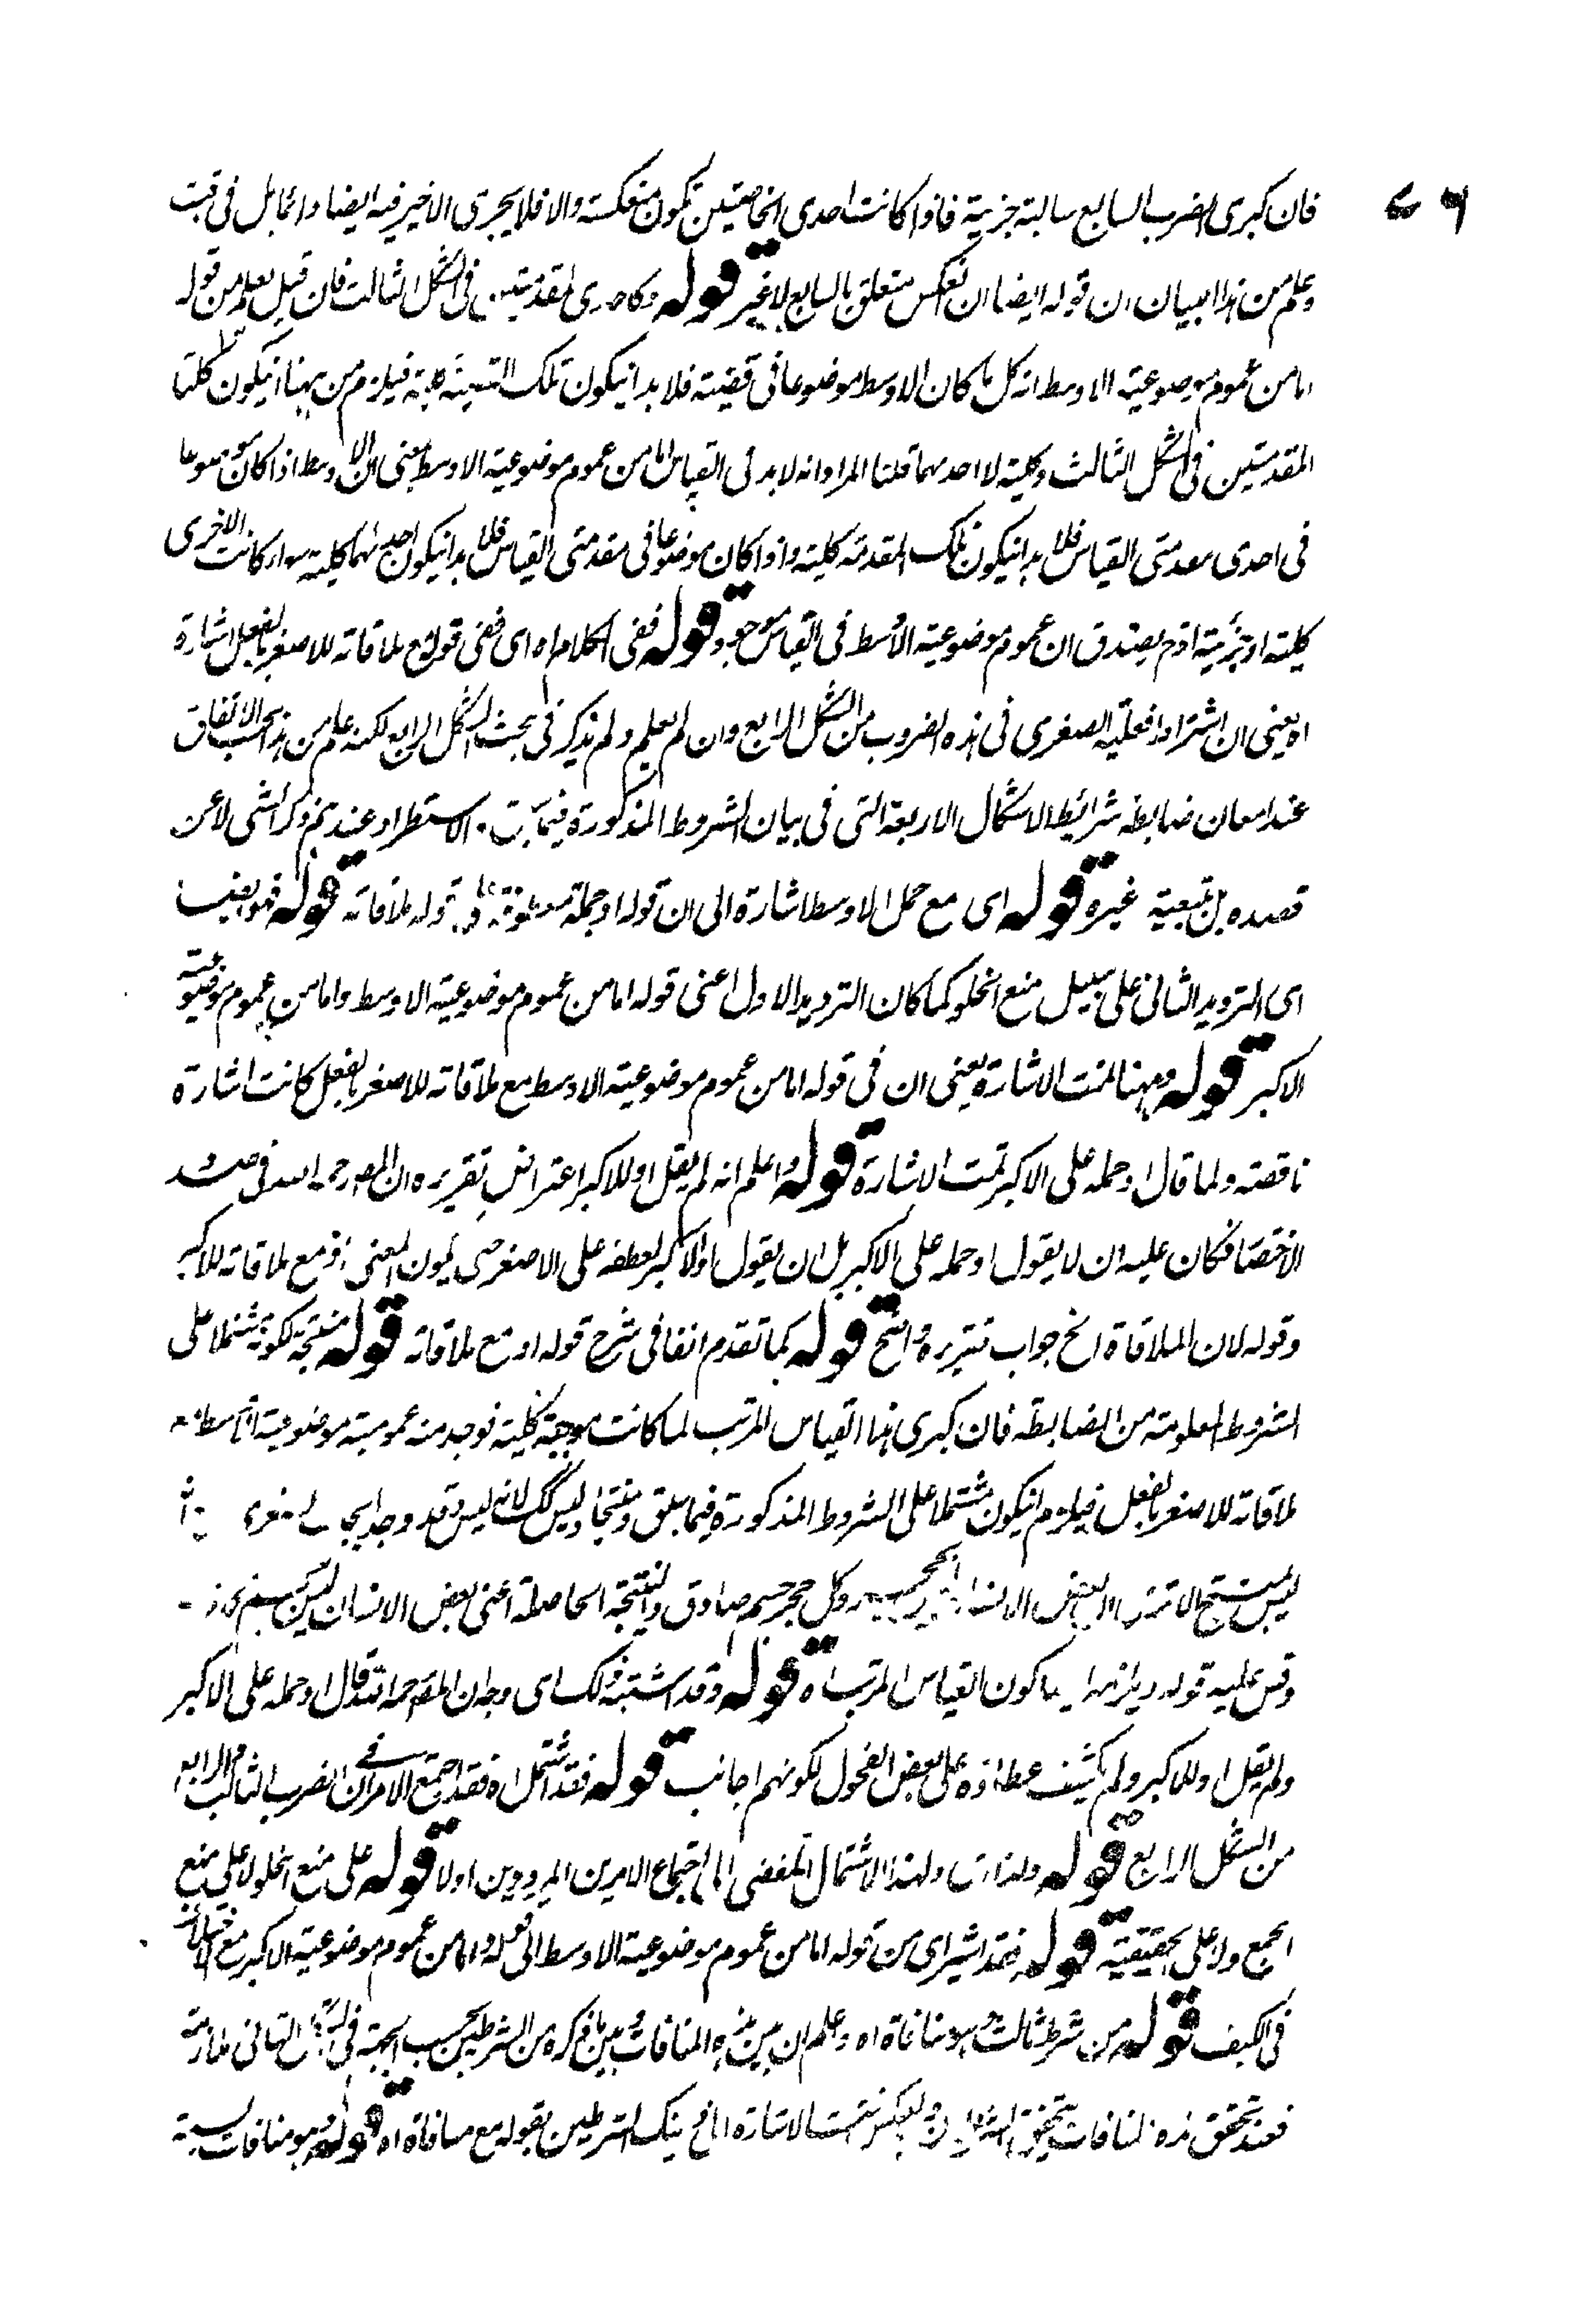 ۷۶
فان كبرى الضرب السابع سالبة جزئية فاذا كانت احدى الخاصتين تكون منعكسة والا فلا يجرى الاخير فيه ايضا وانما بل فى
وعلم من هذا البيان ان قوله ايضا ان نعكس متعلق بالسابع لا غير قوله وكاحدى المقدمتين فى الشكل الثالث فان قيل يعلم من قوله
اما من عموم موضوعية الاوسط انه كل ما كان الاوسط موضوعا فى قضية فلا بد انيكون تلك القضية كلية فيلزم من ههنا انيكون كلتا
المقدمتين فى الشكل الثالث كلية لا احدهما قلنا المراد انه لا بد فى القياس اما من عموم موضوعية الاوسط بمعنى ان الاوسط اذا كان موضوعا
فى احدى مقدمتى القياس فلا بد انيكون تلك المقدمة كلية واذا كان موضوعا فى مقدمتى القياس فلا بد انيكون احدىهما كلية سواء كانت الاخرى
كلية او جزئية اذ يصدق ان عموم موضوعية الاوسط فى القياس موجود قوله ففى الكلام اه اى ففى قوله مع ملاقاته للاصغر بالفعل اشارة
اه يعنى ان اشتراط فعلية الصغرى فى هذه الضروب من الشكل الرابع وان لم يعلم ولم يذكر فى بحث الشكل الرابع لكنه علم من هذا بحسب الاتفاق
عند امعان ضابطة شرائط الاشكال الاربعة التى فى بيان الشروط المذكورة فيما الاستطراد عندهم ذكر الشى لا عن
قصده بل بتبعية غيره قوله اى مع حمل الاوسط اشارة الى ان قوله او حمله معطوفة على قوله ملاقاته قوله فهو
اى الترديد الثانى على سبيل منع الخلو كما كان الترديد الاول اعنى قوله اما من عموم موضوعية الاوسط واما من عموم موضوعية
الاكبر قوله وههنا تمت الاشارة يعنى ان فى قوله اما من عموم موضوعية الاوسط مع ملاقاته للاصغر بالفعل كانت اشارة
ناقصة ولما قال او حمله على الاكبر تمت الاشارة قوله واعلم انه لم يقل او للاكبر اعتراض تقريره ان المصنف رحمه الله فى صدد
الاختصار فكان عليه ان لا يقول او حمله على الاكبر بل ان يقول او للاكبر لعطفه على الاصغر حتى يكون المعنى او مع ملاقاته للاكبر
وقوله لان الملاقاة الخ جواب تقريره واضح قوله كما تقدم انفا فى شرح قوله او مع ملاقاته قوله منتجة لكونه مشتملا على
الشروط المعلومة من الضابطة فان كبرى هذا القياس المرتب لما كانت موجبة كلية فوجد منه عمومية موضوعية الاوسط مع
ملاقاته للاصغر بالفعل فيلزم انيكون مشتملا على الشروط المذكورة فيما سبق ومنتجا وليس كك لانه ليس قد وجد ايجاب
ليس بمنتج الا ترى ان بعض الانسان وكل حجر جسم صادق والنتيجة الحاصلة اعنى بعض الانسان ليس بجسم كاذب
وقس عليه قوله ويلزم كون القياس المرتب اه قوله وقد اشتبه ذلك اى وجه ان المصنف رحمه الله قال او حمله على الاكبر
ولم يقل او للاكبر ولم يكشف غطاؤه على بعض الفحول لكونهم اجانب قوله فقد اشتمل اه فقد اجتمع الامران فى الضرب الثالث والرابع
من الشكل الرابع قوله ولذا اى ولهذا الاشتمال المفضى الى اجتماع الامرين المرددين اولا قوله على منع الخلو لا على منع
الجمع ولا على الحقيقية قوله فقد اشير اى من قوله اما من عموم موضوعية الاوسط الى قوله واما من عموم موضوعية الاكبر مع الاختلاف
فى الكيف قوله من شرط ثالث وهو منافاة اه وعلم ان بين هذه المنافات وبين ما ذكره من الشرطين بحسب الجهة فى الشكل الثانى ملازمة
فعند تحقق هذه المنافات يتحقق الشرطان وبالعكس تمت الاشارة الى ذينك الشرطين بقوله مع منافاة اه قوله وهو منافات نسبة